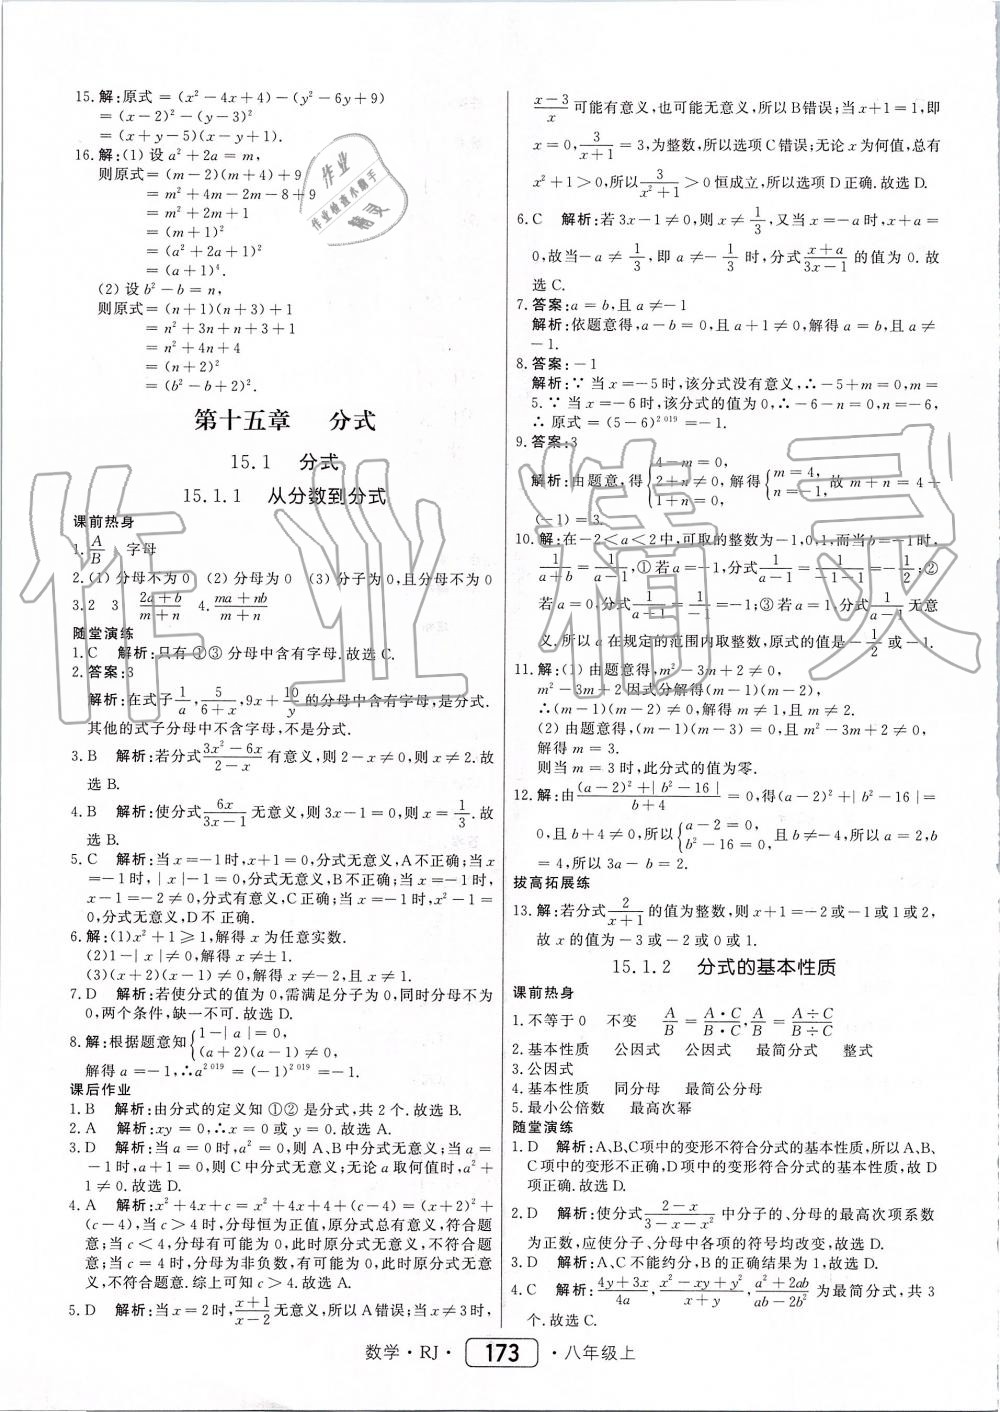 15.解:原式=(x²-4x+4)-(y²-6y+9)
=(x-2)²-(y-3)²
=(x+y-5)(x-y+1).
16.解:(1)设a²+2a=m,
则原式=(m-2)(m+4)+9
=m²+4m-2m-8+9
=m²+2m+1
=(m+1)²
=(a²+2a+1)²
=(a+1)⁴.
(2)设b²-b=n,
则原式=(n+1)(n+3)+1
=n²+3n+n+3+1
=n²+4n+4
=(n+2)²
=(b²-b+2)².
第十五章 分式
15.1 分式
15.1.1 从分数到分式
课前热身
1.A/B 字母
2.(1)分母不为0 (2)分母为0 (3)分子为0,且分母不为0
3.2 3 (2a+b)/(m+n) 4.(ma+nb)/(m+n)
随堂演练
1.C 解析:只有①③分母中含有字母.故选C.
2.答案:3
解析:在式子1/a,5/(6+x),9x+10/y的分母中含有字母,是分式.
其他的式子分母中不含字母,不是分式.
3.B 解析:若分式(3x²-6x)/(2-x)有意义,则2-x≠0,则x≠2.故
选B.
4.B 解析:使分式6x/(3x-1)无意义,则3x-1=0,则x=1/3.故
选B.
5.C 解析:当x=-1时,x+1=0,分式无意义,A不正确;当x
=-1时,|x|-1=0,分式无意义,B不正确;当x=-1时,
x-1=-2≠0,分式有意义,C正确;当x=-1时,x²-1=
0,分式无意义,D不 正确.
6.解:(1)x²+1≥1,解得x为任意实数.
(2)1-|x|≠0,解得x≠±1.
(3)(x+2)(x-1)≠0,解得x≠-2,且x≠1.
7.D 解析:若使分式的值为0,需满足分子为0,同时分母不为
0,两个条件,缺一不可.故选D.
8.解:根据题意知{1-|a|=0, (a+2)(a-1)≠0,
解得a=-1,∴a²⁰¹⁹=(-1)²⁰¹⁹=-1.
课后作业
1.B 解析:由分式的定义知①②是分式,共2个.故选B.
2.A 解析:xy=0,∴x=0或y=0.故选A.
3.D 解析:当a=0时,a²=0,则A、B中分式无意义;当a=
-1时,a+1=0,则C中分式无意义;无论a取何值时,a²+
1≠0.故选D.
4.A 解析:x²+4x+c=x²+4x+4+(c-4)=(x+2)²+
(c-4),当c>4时,分母恒为正值,原分式总有意义,符合题
意;当c<4,分母有可能为0,此时原分式无意义,不符合题
意;当c=4时,分母为非负数,有可能为0,此时原分式无意
义,不符合题意.综上可知c>4.故选A.
5.D 解析:当x=2时,(x+1)/(x-2)无意义,所以A错误;当x≠3时,
(x-3)/x可能有意义,也可能无意义,所以B错误;当x+1=1,即
x=0,3/(x+1)=3,为整数,所以选项C错误;无论x为何值,总有
x²+1>0,所以3/(x²+1)>0恒成立,所以选项D正确.故选D.
6.C 解析:若3x-1≠0,则x≠1/3,又当x=-a时,x+a=
0,故当-a≠1/3,即a≠-1/3时,分式(x+a)/(3x-1)的值为0.故
选C.
7.答案:a=b,且a≠-1
解析:依题意得,a-b=0,且a+1≠0,解得a=b,且a≠
-1.
8.答案:-1
解析:∵当x=-5时,该分式没有意义,∴-5+m=0,m=
5.∵当x=-6时,该分式的值为0,∴-6-n=0,n=-6,
∴原式=(5-6)²⁰¹⁹=-1.
9.答案:3
解析:由题意,得{4-m=0, 2+n≠0, 1+n=0,解得{m=4, n=-1,故m+n=4+
(-1)=3.
10.解:在-2<a<2中,可取的整数为-1,0,1,而当b=-1时,
1/(a+b)=1/(a-1),①若a=-1,分式1/(a-1)=1/(-1-1)=-1/2;②
若a=0,分式1/(a-1)=1/-1=-1;③若a=1,分式1/(a-1)无意
义.所以a在规定的范围内取整数,原式的值是-1/2或-1.
11.解:(1)由题意得,m²-3m+2≠0,
m²-3m+2因式分解得(m-1)(m-2),
∴(m-1)(m-2)≠0,解得m≠1,且m≠2.
(2)由题意得,(m-1)(m-3)=0,且m²-3m+2≠0,
解得m=3.
则当m=3时,此分式的值为零.
12.解:由((a-2)²+|b²-16|)/(b+4)=0,得(a-2)²+|b²-16|=
0,且b+4≠0,所以{a-2=0, b²-16=0,且b≠-4,所以a=2,b
=4,所以3a-b=2.
拔高拓展练
13.解:若分式2/(x+1)的值为整数,则x+1=-2或-1或1或2,
故x的值为-3或-2或0或1.
15.1.2 分式的基本性质
课前热身
1.不等于0 不变 A/B=(A·C)/(B·C),A/B=(A÷C)/(B÷C)
2.基本性质 公因式 公因式 最简分式 整式
3.公因式
4.基本性质 同分母 最简公分母
5.最小公倍数 最高次幂
随堂演练
1.D 解析:A、B、C项中的变形不符合分式的基本性质,所以A、B、
C项中的变形不正确,D项中的变形符合分式的基本性质,故D
项正确.故选D.
2.D 解析:使分式(2-x)/(3-x-x²)中分子的、分母的最高次项系数
为正数,应使分子、分母中各项的符号均改变,故选D.
3.D 解析:A、C不能约分,B的正确结果为1.故选D.
4.C 解析:(4y+3x)/4a,(x²-xy+y²)/(x+y),(a²+2ab)/(ab-2b²)为最简分式,共3
个.故选C.
数学·RJ· 173 ·八年级上
作业
作业检查小助手
精灵
作业精灵